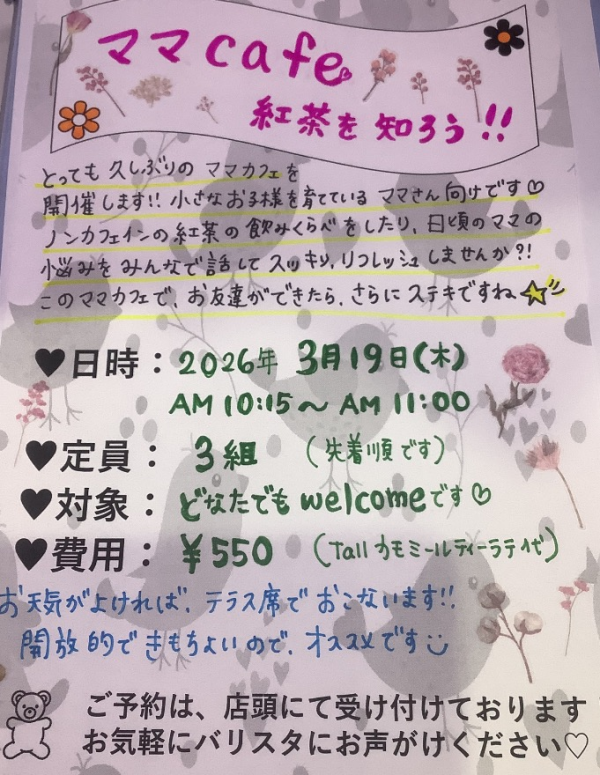 ママcafe
紅茶を知ろう!!
とっても久しぶりのママカフェを
開催します!! 小さなお子様を育てているママさん向けです♡
ノンカフェインの紅茶の飲みくらべをしたり、日頃のママの
悩みをみんなで話してスッキリ、リフレッシュしませんか?!
このママカフェで、お友達ができたら、さらにステキですね☆
♥日時：2026年 3月19日(木)
AM 10:15～AM 11:00
♥定員：3組 (先着順です)
♥対象：どなたでもwelcomeです♡
♥費用：¥550 (Tall カモミールティーラテ代)
お天気がよければ、テラス席でおこないます!!
開放的できもちよいので、オススメです
ご予約は、店頭にて受け付けております
お気軽にバリスタにお声がけください♡